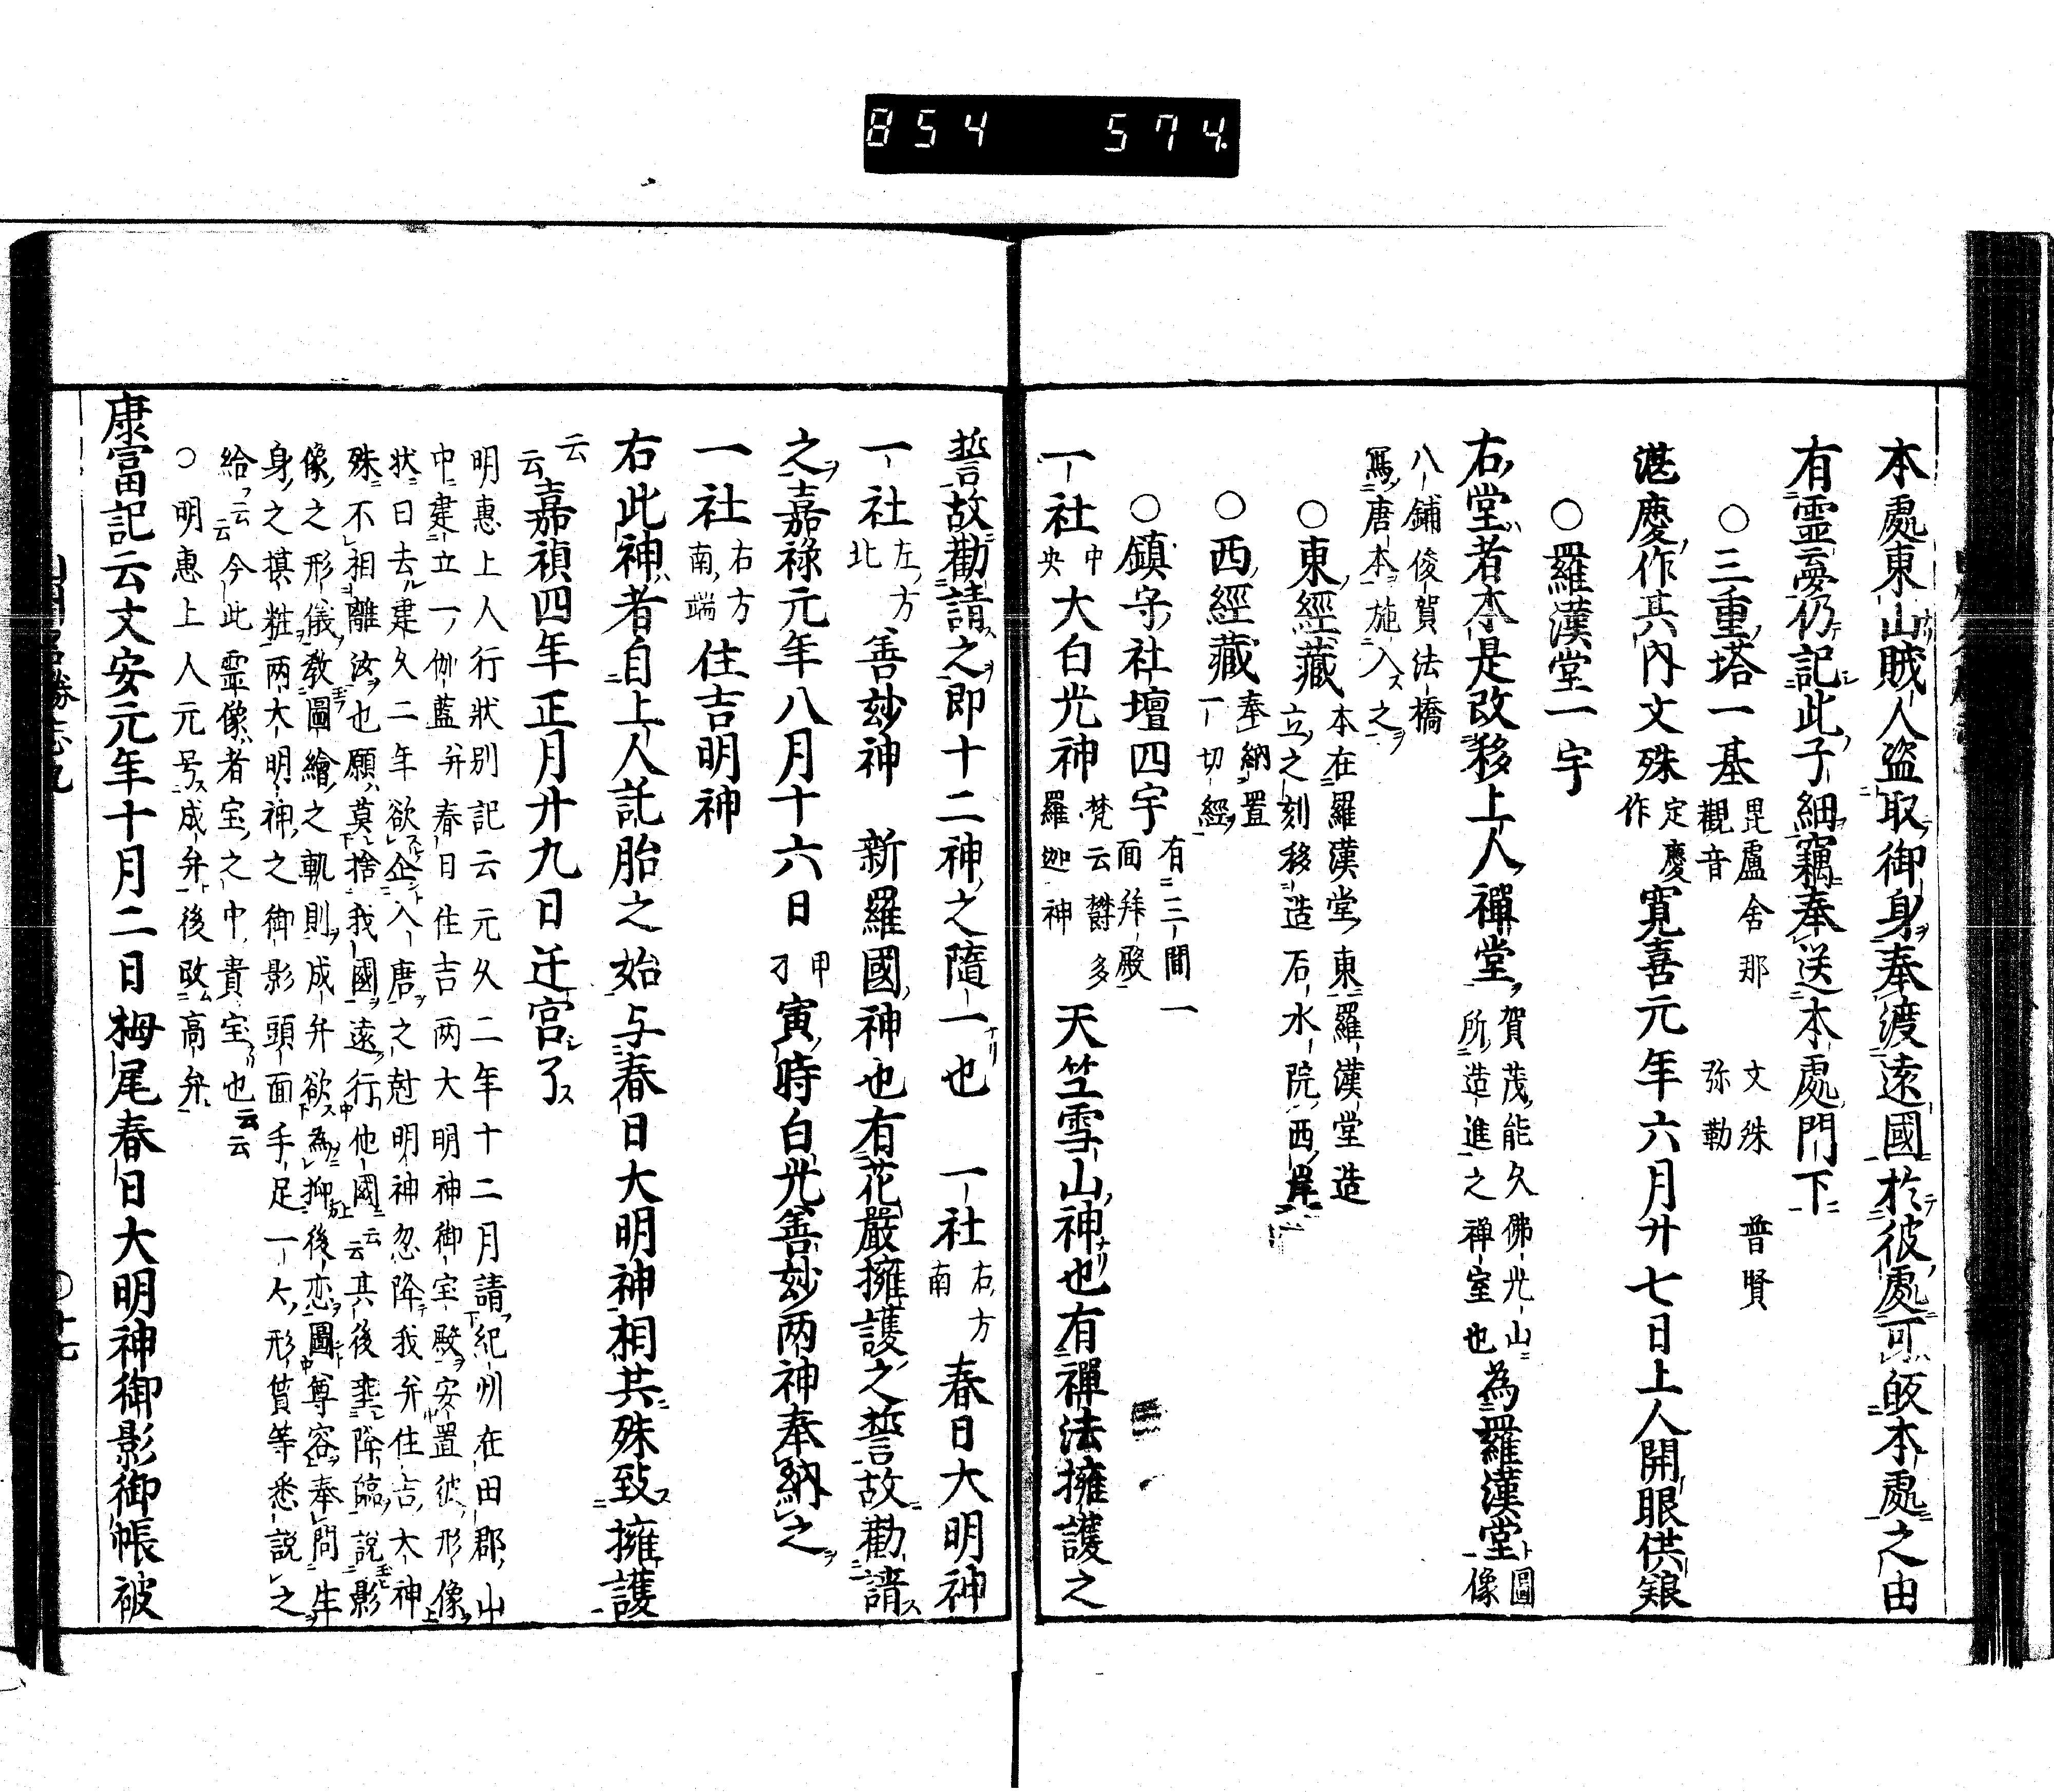 854 574
本處東山賊人盗取御身奉渡遠國於彼處可皈本處之由
有霊夢仍記此子細竊奉送本處門下
○三重塔一基 毘盧舎那 文殊 普賢 觀音 弥勒
湛慶作其内文殊定慶作寛喜元年六月廿七日上人開眼供養
○羅漢堂一宇
右堂者本是改移上人禪堂賀茂能久佛光山所造進之禅室也為羅漢堂圖像
八鋪俊賀法橋
寫唐本施入之
○東經藏本在羅漢堂東羅漢堂造立之刻移造石水院西岸
○西經藏奉納置一切經
○鎮守社壇四宇有三間一面拜殿一
一社中央大白光神梵云欝多羅迦神 天竺雪山神也有禪法擁護之
誓故勸請之即十二神之隨一也 一社右方南 春日大明神
一社左方北 善玅神 新羅國神也有花嚴擁護之誓故勸請
之嘉祿元年八月十六日甲寅時白光善玅两神奉納之
一社右方南端 住吉明神
右此神者自上人託胎之始与春日大明神相共殊致擁護
云云嘉禎四年正月廿九日迁宮了
明惠上人行狀別記云元久二年十二月請紀州在田郡山
中建立一伽藍并春日住吉两大明神御宝殿安置彼形像
状曰去建久二年欲企入唐之尅明神忽降我并住吉大神
殊不相離汝也願莫捨我國遠行他國云云其後垂降臨說影
像之形儀教圖繪之軌則成弁欲為抑後恋圖尊容奉問生
身之摸粧两大明神之御影頭面手足一大形貭等悉説之
給云云今此霊像者宝之中貴宝也云云
○明惠上人元号成弁後改高弁
康冨記云文安元年十月二日栂尾春日大明神御影御帳被